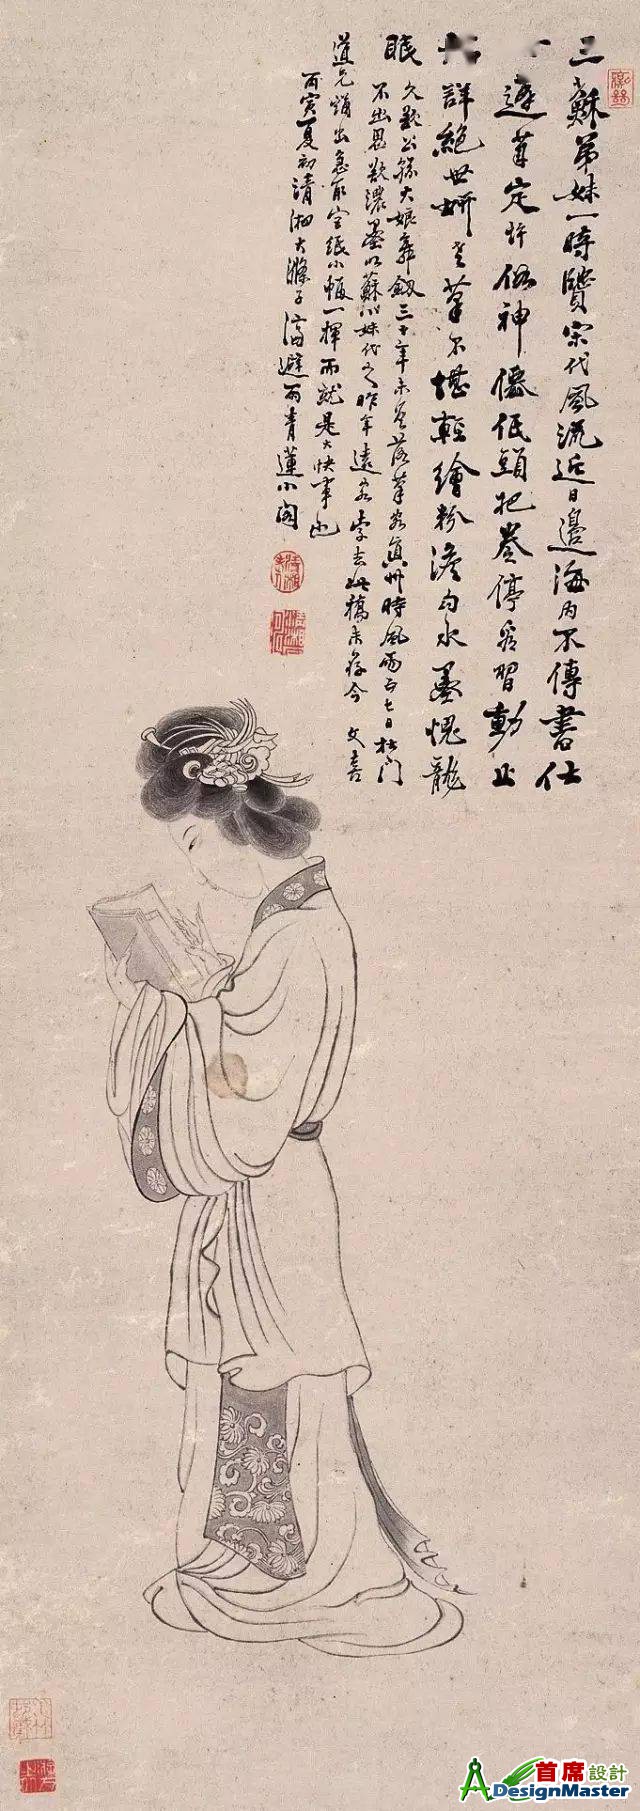 三蘇弟妹一時賢宋代風流近日邊海內不傳書仕
遲筆定許似神僊低頭把卷停習動止
詳絕世妍筆尔堪輕繪粉澹勾水墨愧龍
眠
久欲公孫大娘舞劔三十年未落筆客真州時風雨五七日杜門
不出思欲濃墨以蘇小妹代之昨年遠客去此稿未存今 文喜
道兄出急取空紙小幅一揮而就是大快事也
丙寅夏初清湘大滌子濟避雨青蓮小閣
首席設計
DesignMaster